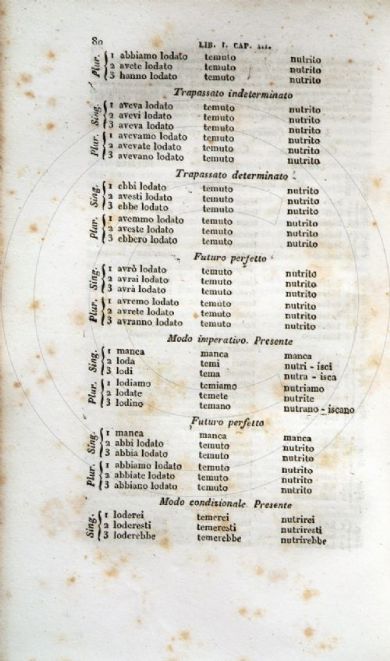 80 LIB. I. CAP.
Plur. 1 abbiamo lodato temuto nutrito
2 avete lodato temuto nutrito
3 hanno lodato temuto nutrito
Trapassato indeterminato
Sing. 1 aveva lodato temuto nutrito
2 avevi lodato temuto nutrito
3 aveva lodato temuto nutrito
Plur. 1 avevamo lodato temuto nutrito
2 avevate lodato temuto nutrito
3 avevano lodato temuto nutrito
Trapassato determinato
Sing. 1 ebbi lodato temuto nutrito
2 avesti lodato temuto nutrito
3 ebbe lodato temuto nutrito
Plur. 1 avemmo lodato temuto nutrito
2 aveste lodato temuto nutrito
3 ebbero lodato temuto nutrito
Futuro perfetto
Sing. 1 avrò lodato temuto nutrito
2 avrai lodato temuto nutrito
3 avrà lodato temuto nutrito
Plur. 1 avremo lodato temuto nutrito
2 avrete lodato temuto nutrito
3 avranno lodato temuto nutrito
Modo imperativo. Presente
Sing. 1 manca manca manca
2 loda temi nutri - isci
3 lodi tema nutra - isca
Plur. 1 lodiamo temiamo nutriamo
2 lodate temete nutrite
3 lodino temano nutrano - iscano
Futuro perfetto
Sing. 1 manca manca manca
2 abbi lodato temuto nutrito
3 abbia lodato temuto nutrito
Plur. 1 abbiamo lodato temuto nutrito
2 abbiate lodato temuto nutrito
3 abbiano lodato temuto nutrito
Modo condizionale Presente
Sing. 1 loderei temerei nutrirei
2 loderesti temeresti nutriresti
3 loderebbe temerebbe nutrirebbe